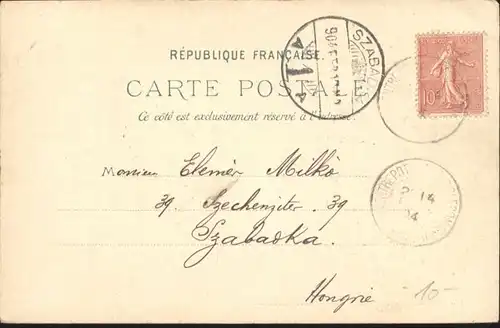 RÉPUBLIQUE FRANÇAISE
CARTE POSTALE
Ce côté est exclusivement réservé à l'adresse.
10
Monsieur Elemér Milkó
39. Szechenjiter. 39
Szabadka.
Hongrie
10-